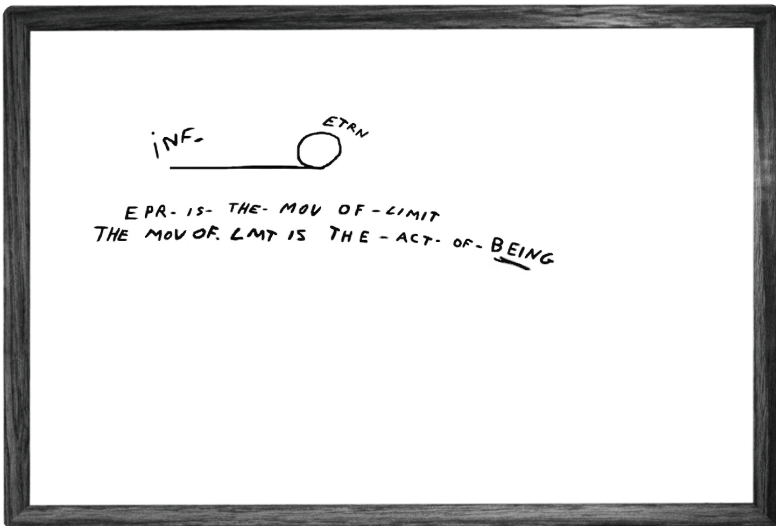 iNF-
ETRN
EPR- IS- THE- MOV OF-LIMIT
THE MOV OF. LMT IS THE-ACT-OF-BEING